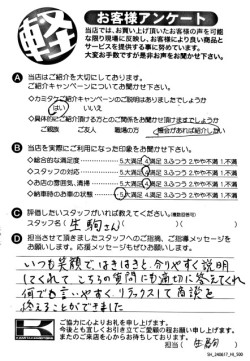 軽
お客様アンケート
当店では、お買い上げ頂いたお客様の声を可能
な限り現場に反映し、お客様により良い商品と
サービスを提供する事に努めています。
大変お手数ですが是非お声をお聞かせ下さい。
Ⓐ 当店はご紹介を大切にしてあります。
ご紹介キャンペーンについてお聞かせ下さい。
◇カミタケ紹介キャンペーンのご説明はありましたでしょうか
はい いいえ
◇具体的にご紹介頂ける方とのご関係をお聞かせ頂けますでしょうか
ご親族 ご友人 職場の方 機会があれば紹介したい
Ⓑ 当店を実際にご利用になった印象をお聞かせ下さい
◇総合的な満足度 5.大満足 4.満足 3.ふつう 2.やや不満 1.不満
◇スタッフの対応 5.大満足 4.満足 3.ふつう 2.やや不満 1.不満
◇お店の雰囲気、清掃 5.大満足 4.満足 3.ふつう 2.やや不満 1.不満
◇納車時のお車の状態 5.大満足 4.満足 3.ふつう 2.やや不満 1.不満
Ⓒ 評価したいスタッフがいれば教えてください。(複数回答可)
スタッフ名( 生駒さん )
Ⓓ 担当させて頂きましたスタッフへのご指摘、ご指導メッセージを
お願いします。応援メッセージもぜひお願いします。
いつも笑顔ではきはきと、分りやすく説明
してくれて、こちらの質問にも適切に答えてくれ
何でも言いやすく、リラックスして商談を
終えることができました
K
ご協力に心よりお礼を申し上げます。
今後とも宜しくお引き立てご愛顧の程お願い申し上げます。
またのご来店を心からお待ちしております。
担当( 生駒 )